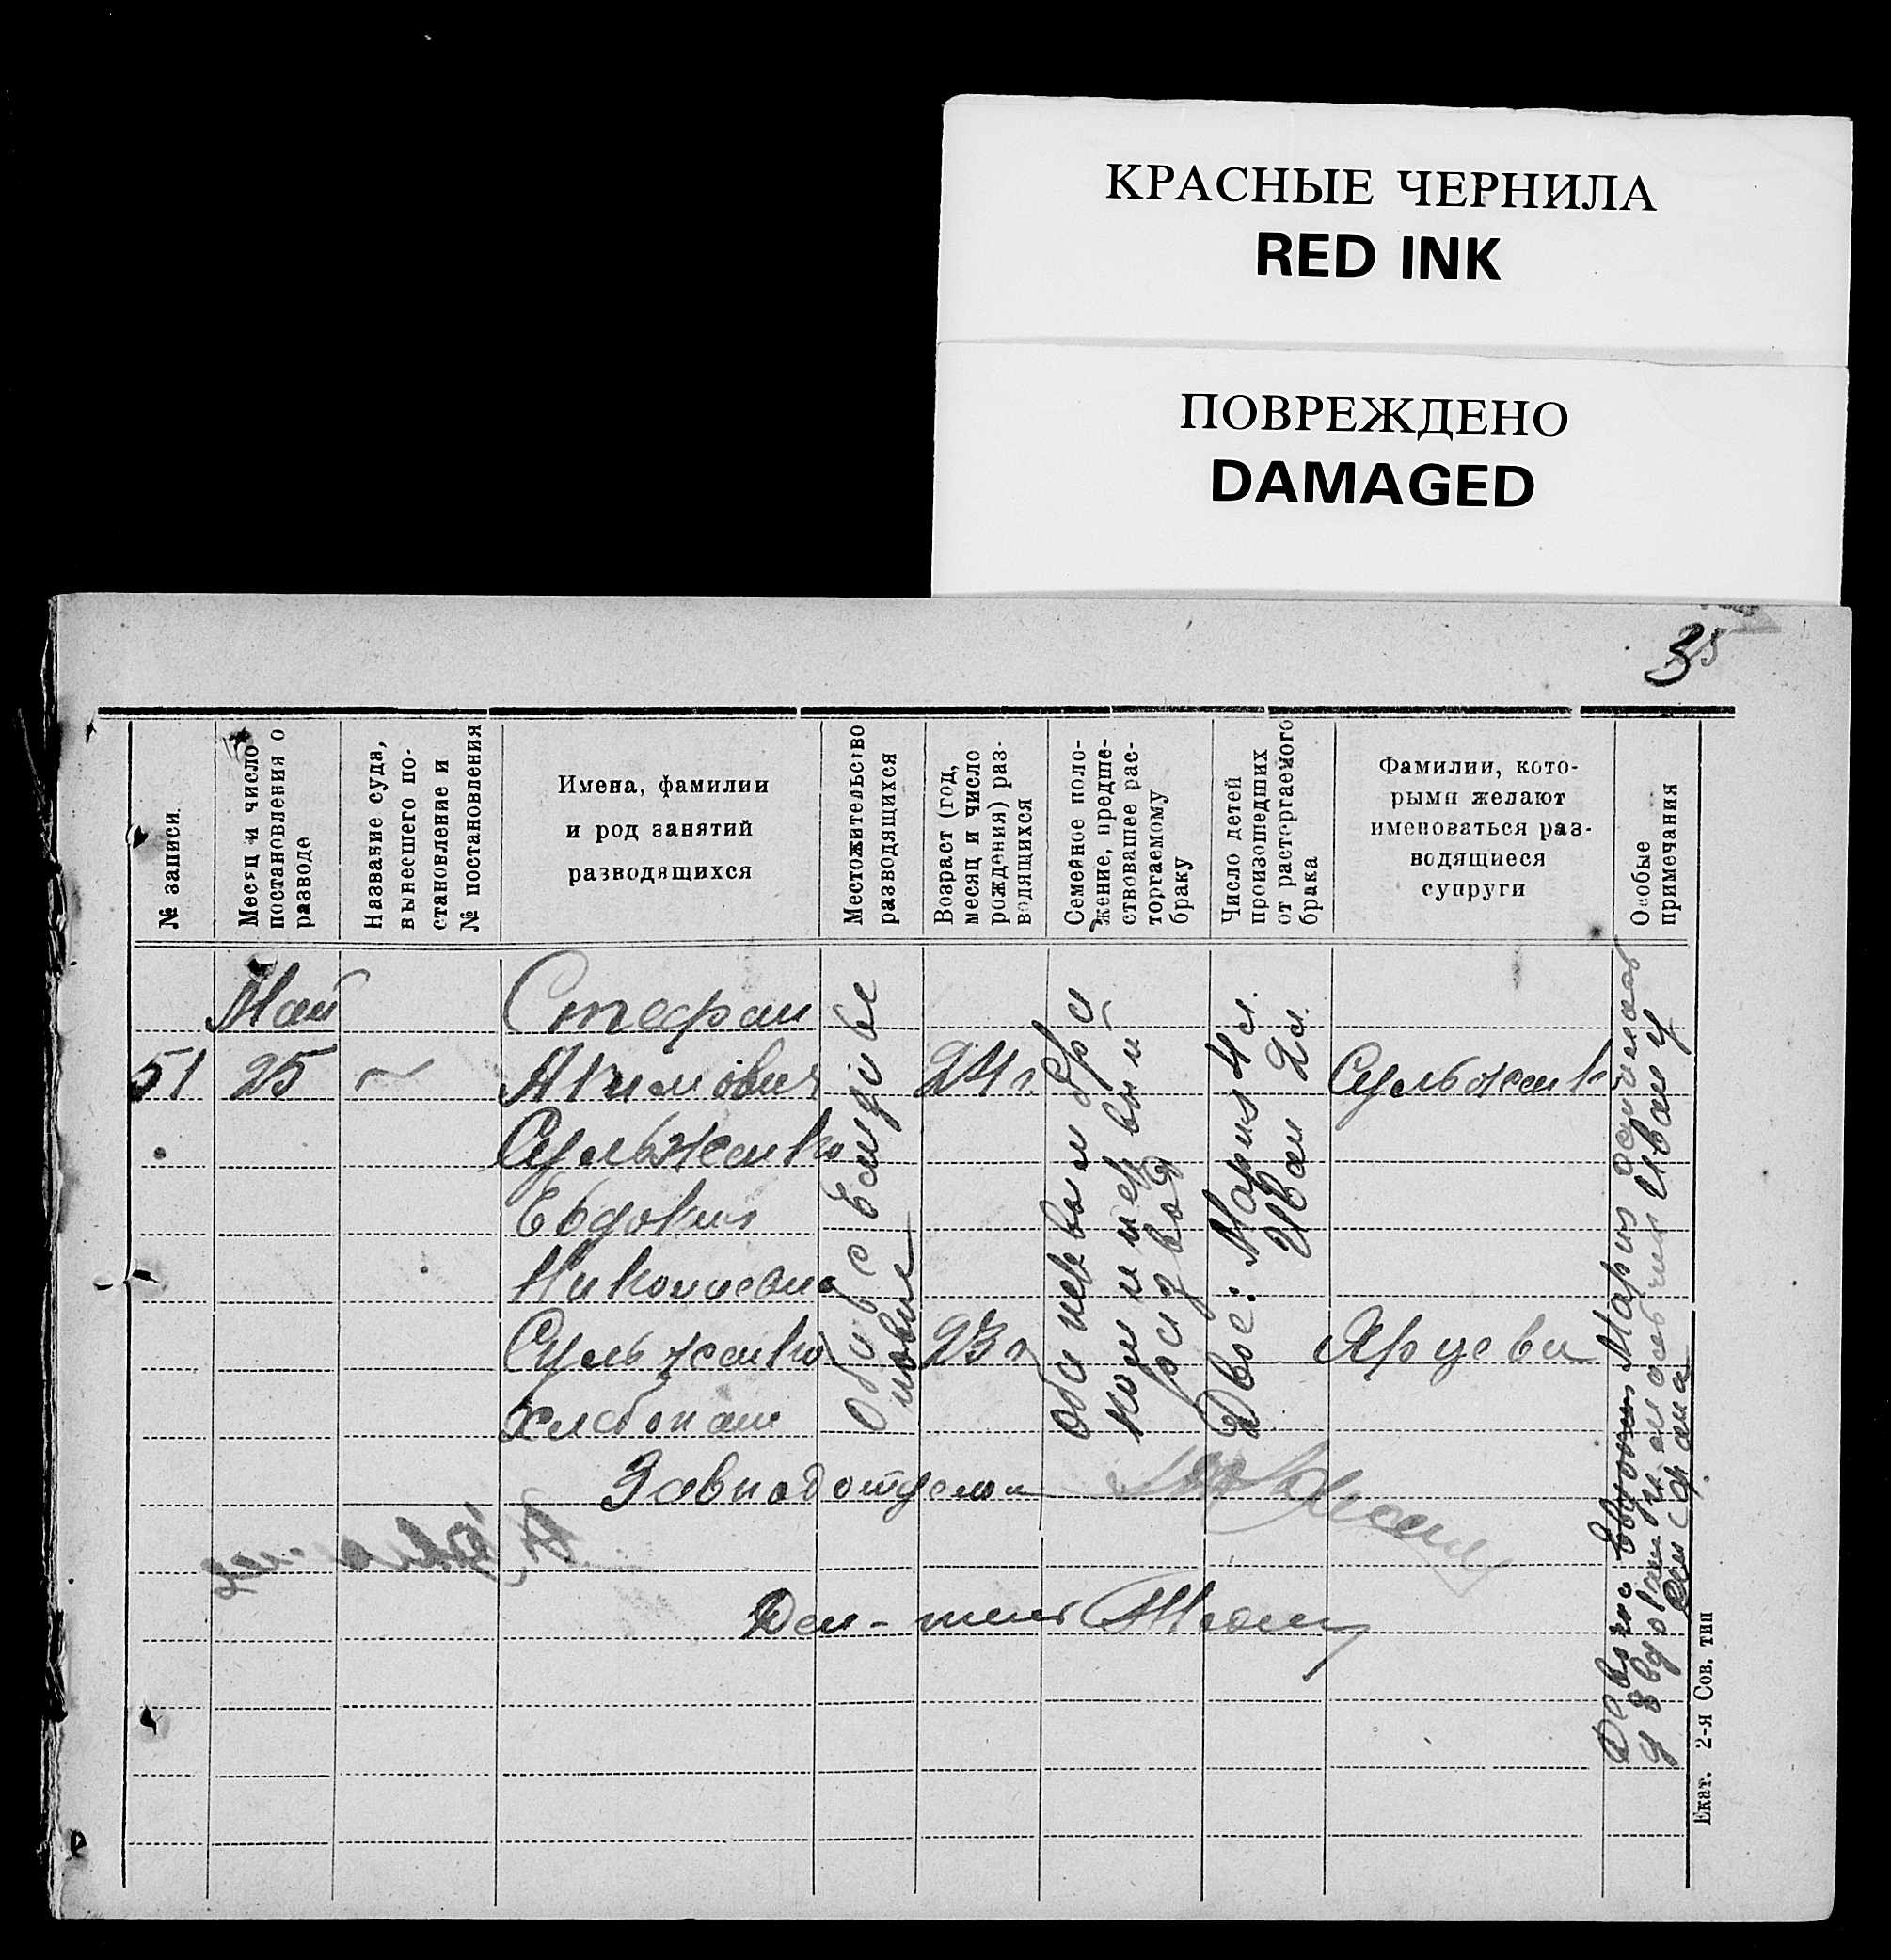 КРАСНЫЕ ЧЕРНИЛА
RED INK
ПОВРЕЖДЕНО
DAMAGED
35
№ записи
Месяц и число
постановления о
разводе
Название суда,
вынесшего по-
становление и
№ постановления
Имена, фамилии
и род занятий
разводящихся
Местожительство
разводящихся
Возраст (год,
месяц и число
рождения) раз-
водящихся
Семейное поло-
жение, предше-
ствовавшее рас-
торгаемому
браку
Число детей
произошедших
от расторгаемого
брака
Фамилии, кото-
рыми желают
именоваться раз-
водящиеся
супруги
Особые
примечания
Май
51
25
Стефан
Акимович
Сульженко
Евдокия
Николаевна
Сульженко
Хлебопаш
Оба с
24 г
23 г
Оба первым бра
ком и первым
развод
Двое: Мария 4 л.
Иван 2 л.
Сульженко
Ярцева
Мария
у Евдокии
Иван у
Завподотделом
Екат. 2-я Сов. тип